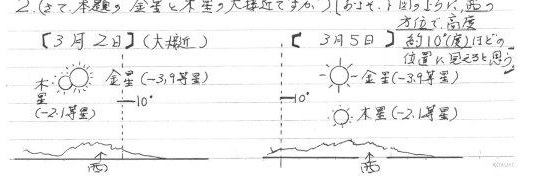 2.(さて、本題の金星と木星の大接近ですが、)およそ、下図のように、西の
方位で、高度
約10°(度)ほどの
位置に見えると思う。
【3月2日】(大接近)
【3月5日】
木星
(-2.1等星)
金星(-3.9等星)
10°
西
金星(-3.9等星)
10°
木星(-2.1等星)
西
KOKUYO